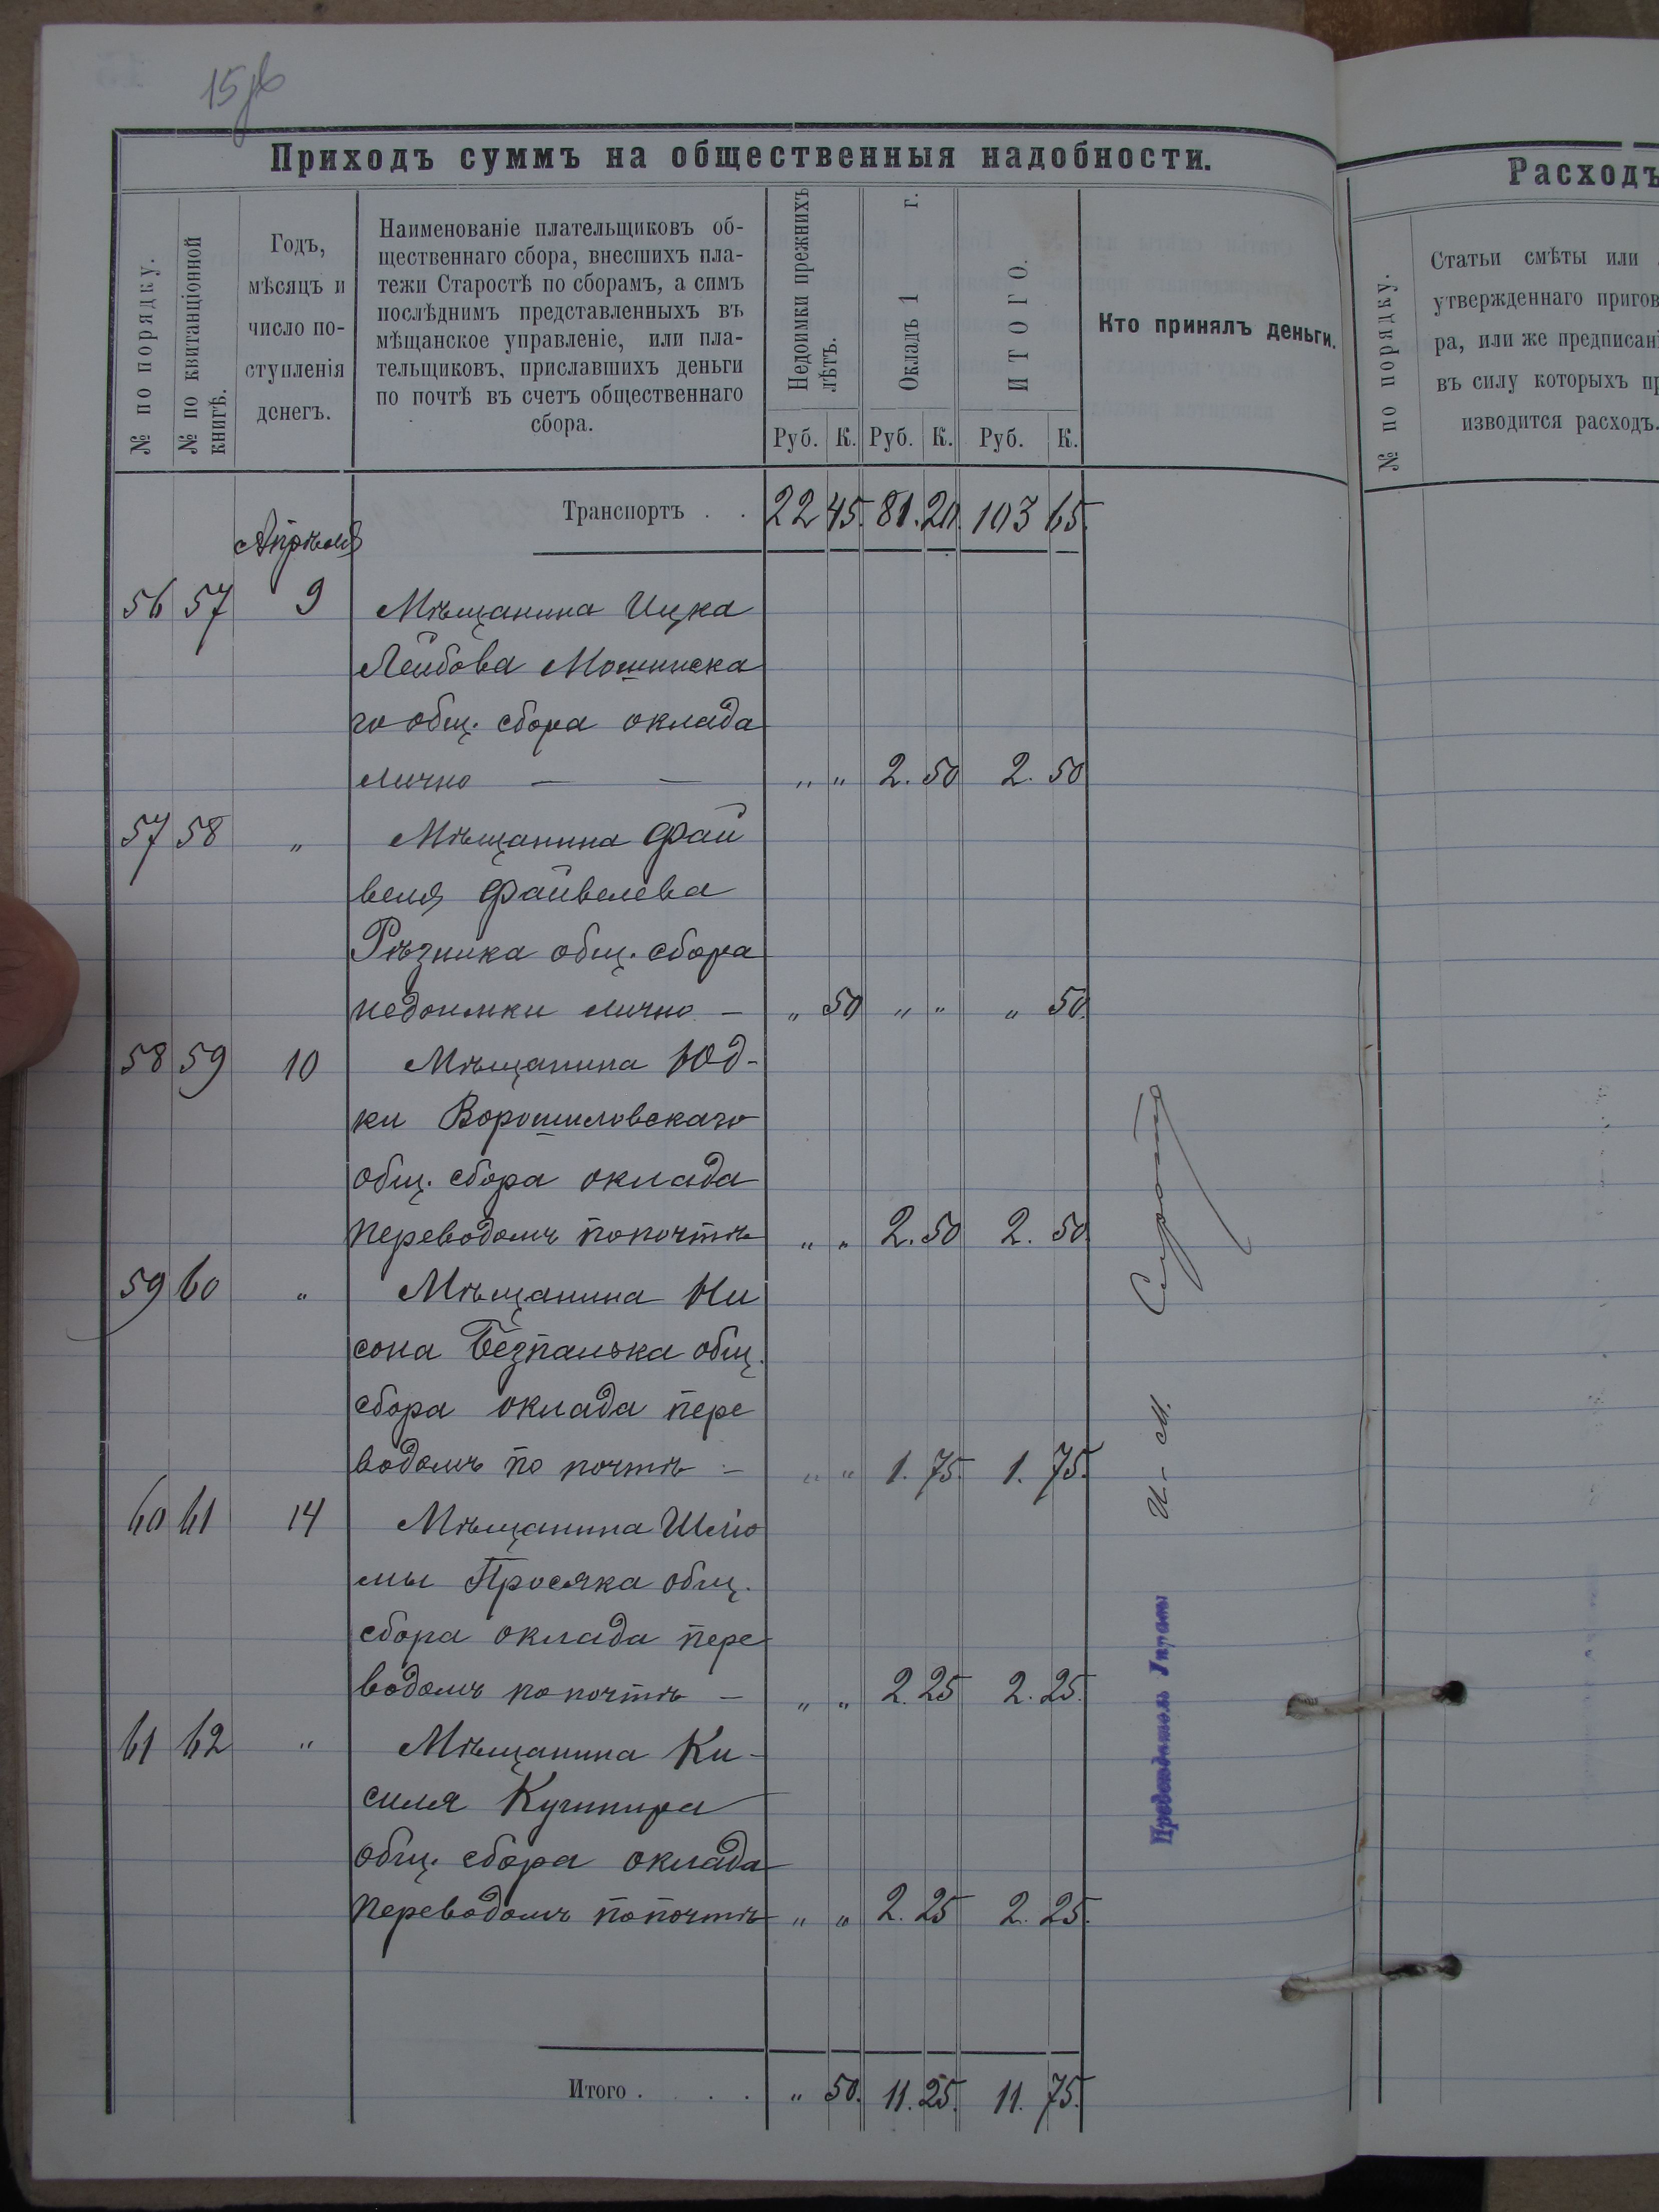 Приходъ суммъ на общественныя надобности.
№ по порядку.
№ по квитанціонной
книгѣ.
Годъ,
мѣсяцъ и
число по-
ступленія
денегъ.
Наименованіе плательщиковъ об-
щественнаго сбора, внесшихъ пла-
тежи Старостѣ по сборамъ, а симъ
послѣднимъ представленныхъ въ
мѣщанское управленіе, или пла-
тельщиковъ, приславшихъ деньги
по почтѣ въ счетъ общественнаго
сбора.
Недоимки прежнихъ
лѣтъ.
Окладъ 1 г.
ИТОГО.
Руб. К. Руб. К. Руб. К.
Кто принялъ деньги.
Транспортъ . . 22 45. 81. 20. 103 65.
Апрѣля
56 57 9 Мѣщанина Ицка
Лейбова Мошинска
го общ. сбора оклада
лично — — „ „ 2. 50 2. 50
57 58 „ Мѣщанина Фай
веля Файвелева
Рѣзника общ. сбора
недоимки лично — „ 50 „ „ „ 50.
58 59 10 Мѣщанина Юд-
ки Ворошиловскаго
общ. сбора оклада
переводомъ по почтѣ „ „ 2. 50 2. 50.
59 60 „ Мѣщанина Ни
сона Безпалька общ.
сбора оклада пере
водомъ по почтѣ — „ „ 1. 75. 1. 75.
60 61 14 Мѣщанина Шліо
мы Просяка общ.
сбора оклада пере
водомъ по почтѣ — „ „ 2. 25 2. 25.
61 62 „ Мѣщанина Ки-
силя Кушнира
общ. сбора оклада
переводомъ по почтѣ „ „ 2. 25 2. 25.
Итого . . . . „ 50. 11. 25. 11. 75.
И. М.
Расходъ
№ по порядку.
Статьи смѣты или
утвержденнаго пригов
ра, или же предписан
въ силу которыхъ пр
изводится расходъ.